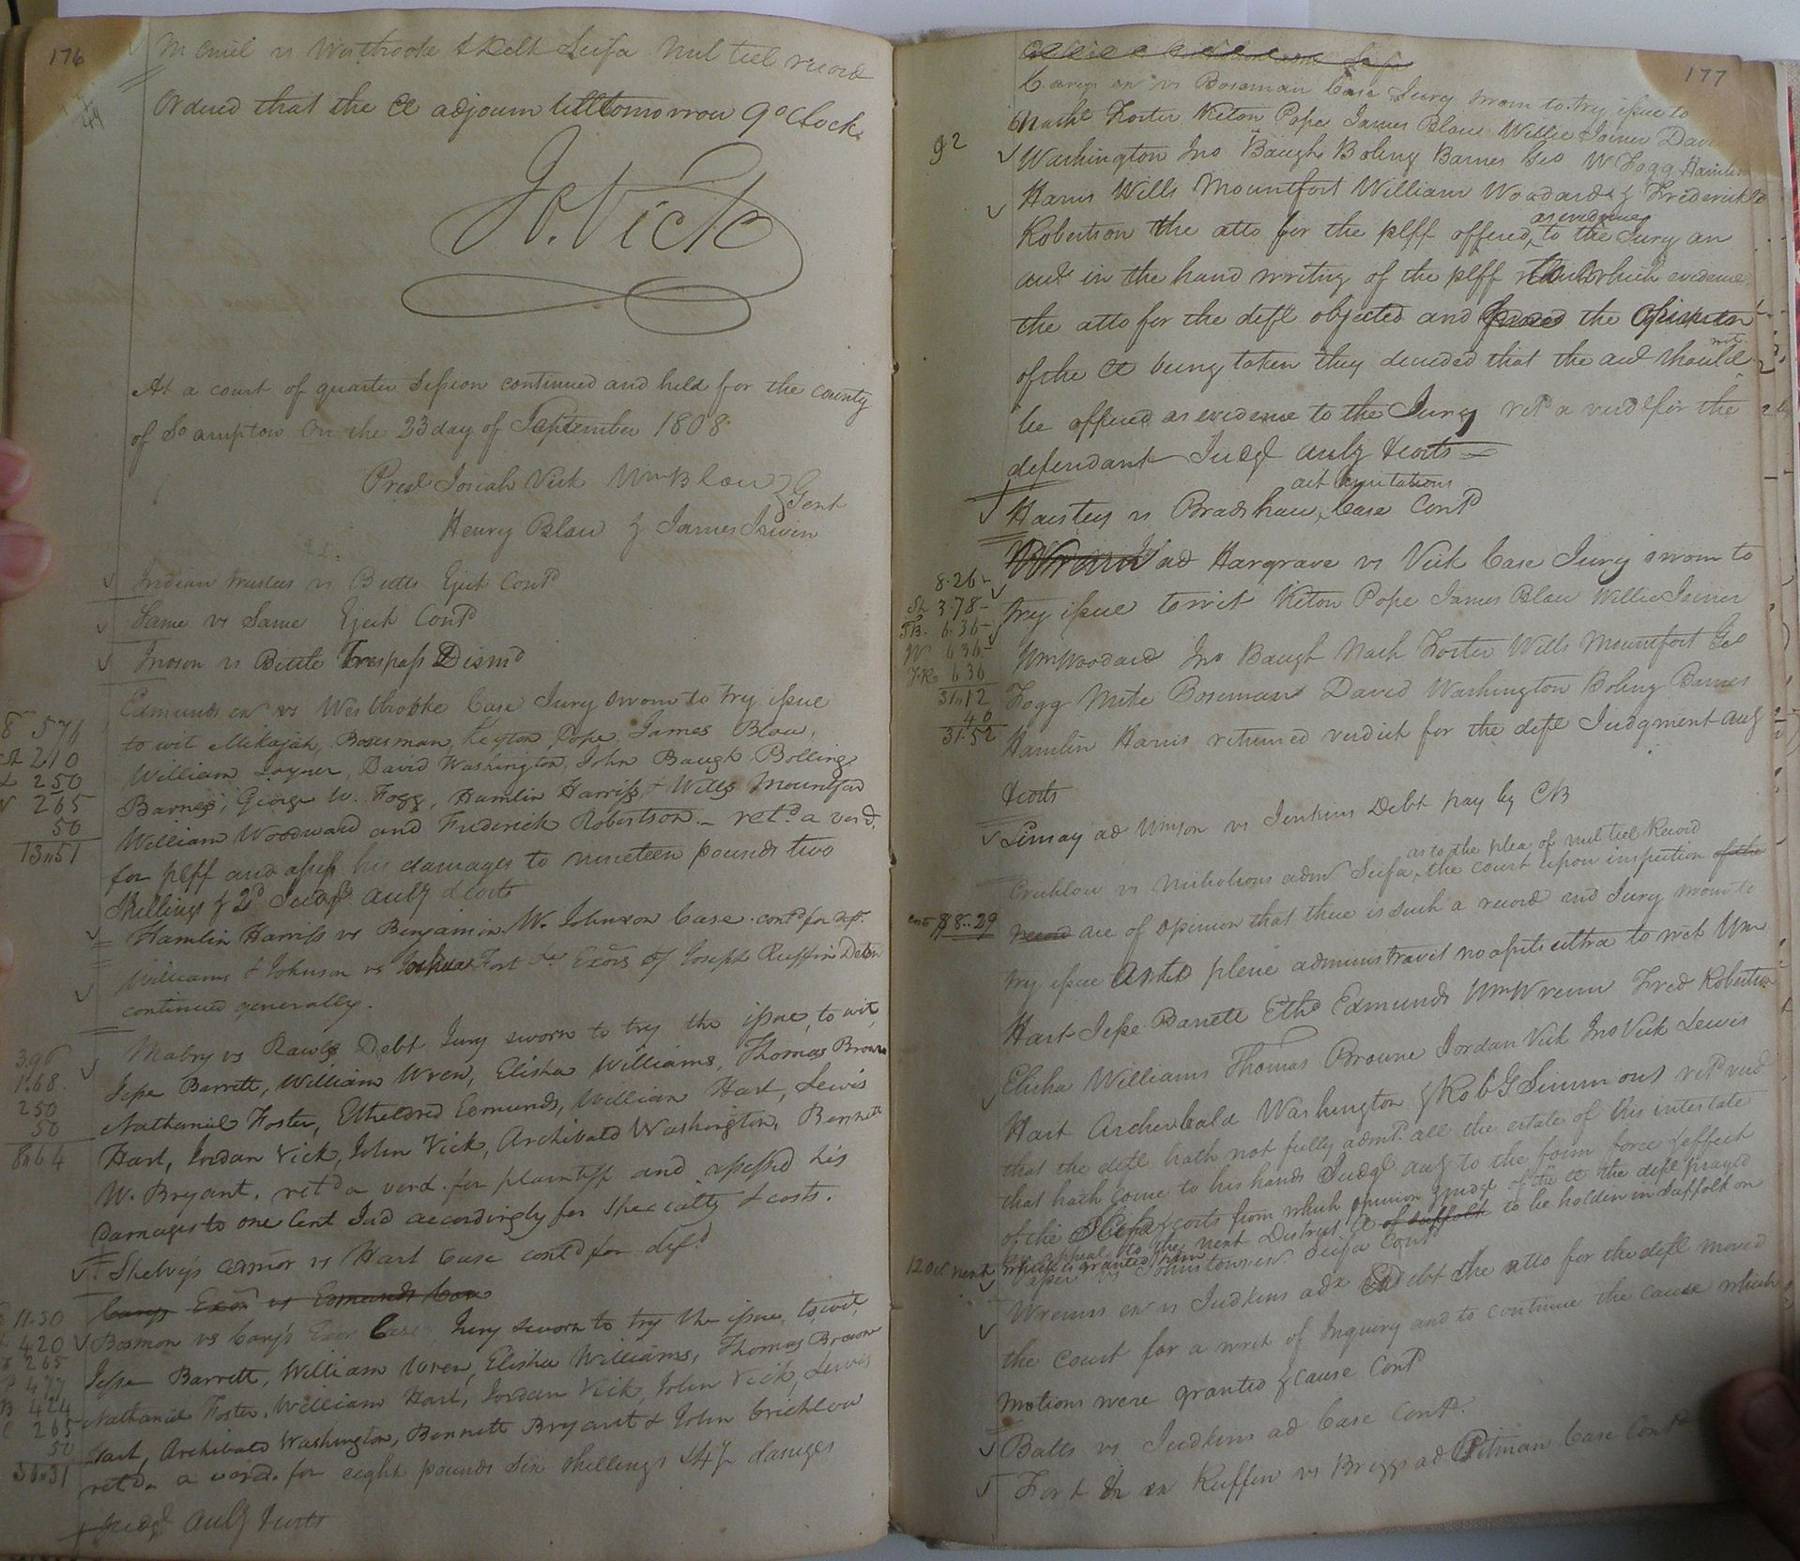 176
McCniel vs Westbrooke & Delk Scifa Nul tiel record
Ordered that the Ct adjourn till tomorrow 9 oClock
Jo. Vick
At a court of quarter Session continued and held for the county
of So ampton On the 23 day of September 1808.
Presl Josiah Vick Wm Blow } Gent
Henry Blow & James Irwin
Indian trustees vs Betts Eject Contd
Same vs Same Eject Contd
Inoson vs Bettle Trespass Dismd
Edmunds exr vs Westbrooke Case Jury sworn to try issue
to wit Mikajah Boseman, Keyton Pope, James Blow,
William Joyner, David Washington, John Baugh, Bolling
Barnes, George W. Fogg, Hamlin Harriss, & Wills Mountford
William Woodward and Frederick Robertson. – retd a verd.
for plff and assess his damages to nineteen pounds two
Shillings & 2d Judgt aulg & costs
8 576
210
250
265
50
13"51
Hamlin Harriss vs Benjamin W. Johnson Case contd for deft.
Williams & Johnson vs Joshua Fort &c Exors of Joseph Ruffin Debt
continued generally.
Mabry vs Rawls Debt Jury sworn to try the issue, to wit,
Jesse Barrett, William Wren, Elisha Williams, Thomas Brown
Nathaniel Foster, Etheldred Edmunds, William Hart, Lewis
Hart, Jordan Vick, John Vick, Archibald Washington, Bennett
W. Bryant, retd a verd. for plaintiff and assessed his
Damages to one Cent Jud accordingly for Specialty & costs.
396
1.68
250
50
8"64
Shelvys admor vs Hart Case contd for deft
Carys Exor vs Edmunds Case
Bosmon vs Cary's Exor Case Jury sworn to try the issue, to wit,
Jesse Barrett, William Wren, Elisha Williams, Thomas Brown
Nathaniel Foster, William Hart, Jordan Vick, John Vick, Lewis
Hart, Archibald Washington, Bennett Bryant & John Crichlow
retd. a verd. for eight pounds six shillings & 4d damages
Judgt aulg & costs
11.50
420
265
477
424
265
50
177
Carys exr vs Boseman Case Jury sworn to try issue to
Nathl Foster Keton Pope James Blow Willie Joiner David
Washington Jno Baugh Boling Barnes Geo W Fogg Hamlin
Harris Wills Mountfort William Woodard & Frederick
as evidence
Robertson the atto for the plff offered to the Jury an
acct in the hand writing of the plff which evidence
the atto for the deft objected and the Opinion
of the Ct being taken they decided that the act should not
be offered as evidence to the Jury retd a verdt for the
defendant Judgt aulg & costs
92
act limitations
Harstey vs Bradshaw, Case Contd
ad Hargrave vs Vick Case Jury sworn to
try issue to wit Keton Pope James Blow Willie Joiner
Wm Woodard Jno Baugh Nath Foster Wills Mountfort Geo
Fogg Mike Boseman David Washington Boling Barnes
Hamlin Harris returned verdict for the deft Judgment aulg
& costs
8.26
3.78
6.36
636
636
31"12
40
31.52
Limay ad Unison vs Jenkins Debt pay by CB
as to the plea of nul tiel Record
Crichlow vs Nicholsons admr Scifa, the court upon inspection of the
record are of opinion that there is such a record and Jury sworn to
try issue Antio plene administravit no assets ultra to wit Wm
Hart Jesse Barrett Ethd Edmunds Wm Wrenn Fred Robertson
Elisha Williams Thomas Browne Jordan Vick Jno Vick Lewis
Hart Archerbald Washington & Rob G Simmons retd verd
that the deft hath not fully admd all the estate of his intestate
that hath come to his hands Judgt aulg to the form force & effect
of the & costs from which opinion & judgt of the ct the deft prayed
an appeal to the next District Ct of suffolk to be holden in Suffolk on
12 Oct next which is granted him
costs $8..29
vs Johnstownes Scifa Contd
Wrenns exr vs Judkins adx debt the atto for the deft moved
the Court for a writ of Inquiry and to continue the cause which
motions were granted & cause Contd
Batts vs Judkins ad Case Contd.
Fort & exr Ruffin vs Briggs ad Pitman Case Contd